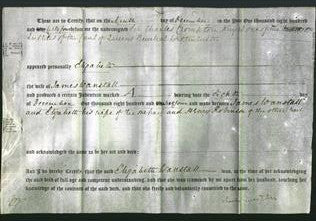 These are to Certify, that on the day of December in the Year One thousand eight hundred
and before me Sir Charles Crompton Knight one of the
Justices of the Court of Queens Bench at Westminster
appeared personally Elizabeth
the wife of James Wanstall
and produced a certain Indenture marked A bearing date the eighth day
of December One thousand eight hundred and and made between James Wanstall
and Elizabeth his wife of the one part and of the other part
and acknowledged the same to be her act and deed:
And I do hereby Certify, that the said Elizabeth Wanstall was, at the time of her acknowledging
the said deed of full age and competent understanding, and that she was examined by me apart from her husband, touching her
knowledge of the contents of the said deed, and that she freely and voluntarily consented to the same.